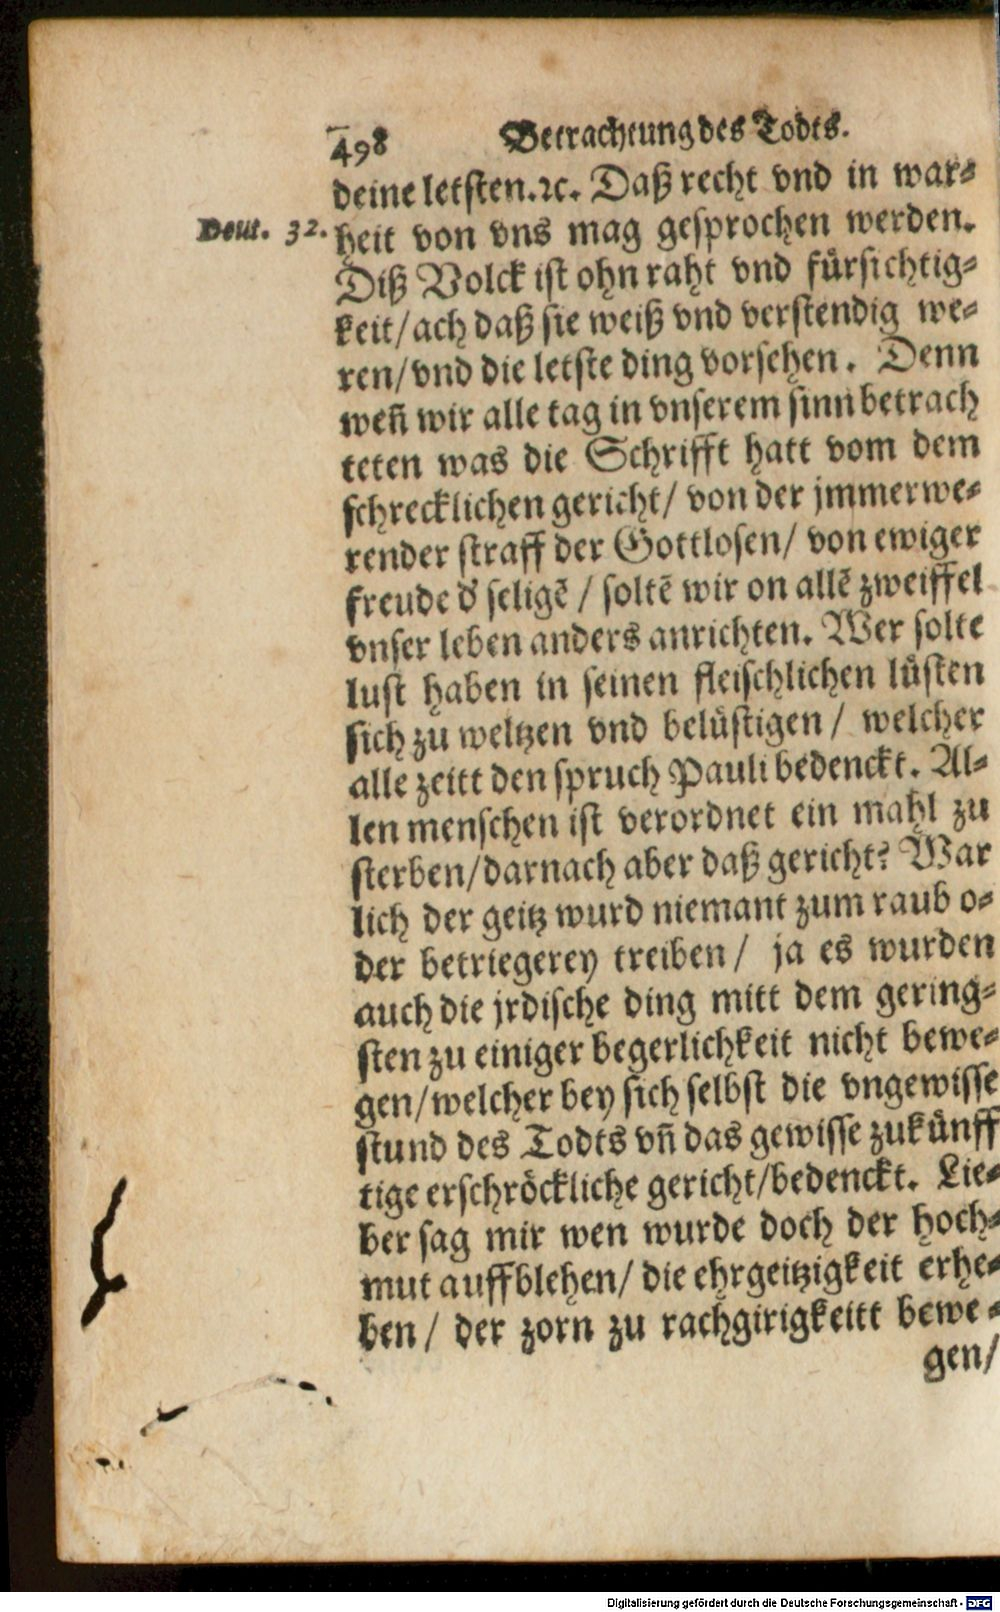 498 Betrachtung des Todts.
deine letsten. ꝛc. Daß recht vnd in war⸗
Deut. 32. heit von vns mag gesprochen werden.
Diß Volck ist ohn raht vnd fürsichtig⸗
keit/ ach daß sie weiß vnd verstendig we⸗
ren/ vnd die letste ding vorsehen. Denn
weñ wir alle tag in vnserem sinn betrach
teten was die Schrifft hatt vom dem
schrecklichen gericht/ von der jmmerwe⸗
render straff der Gottlosen/ von ewiger
freude d' seligẽ / soltẽ wir on allẽ zweiffel
vnser leben anders anrichten. Wer solte
lust haben in seinen fleischlichen lüsten
sich zu weltzen vnd belüstigen/ welcher
alle zeitt den spruch Pauli bedenckt. Al⸗
len menschen ist verordnet ein mahl zu
sterben/ darnach aber daß gericht? War
lich der geitz wurd niemant zum raub o⸗
der betriegerey treiben/ ja es wurden
auch die jrdische ding mitt dem gering⸗
sten zu einiger begerlichkeit nicht bewe⸗
gen/ welcher bey sich selbst die vngewisse
stund des Todts vñ das gewisse zukünff
tige erschröckliche gericht/ bedenckt. Lie⸗
ber sag mir wen wurde doch der hoch⸗
mut auffblehen/ die ehrgeitzigkeit erhe⸗
ben/ der zorn zu rachgirigkeitt bewe⸗
gen/
Digitalisierung gefördert durch die Deutsche Forschungsgemeinschaft - DFG